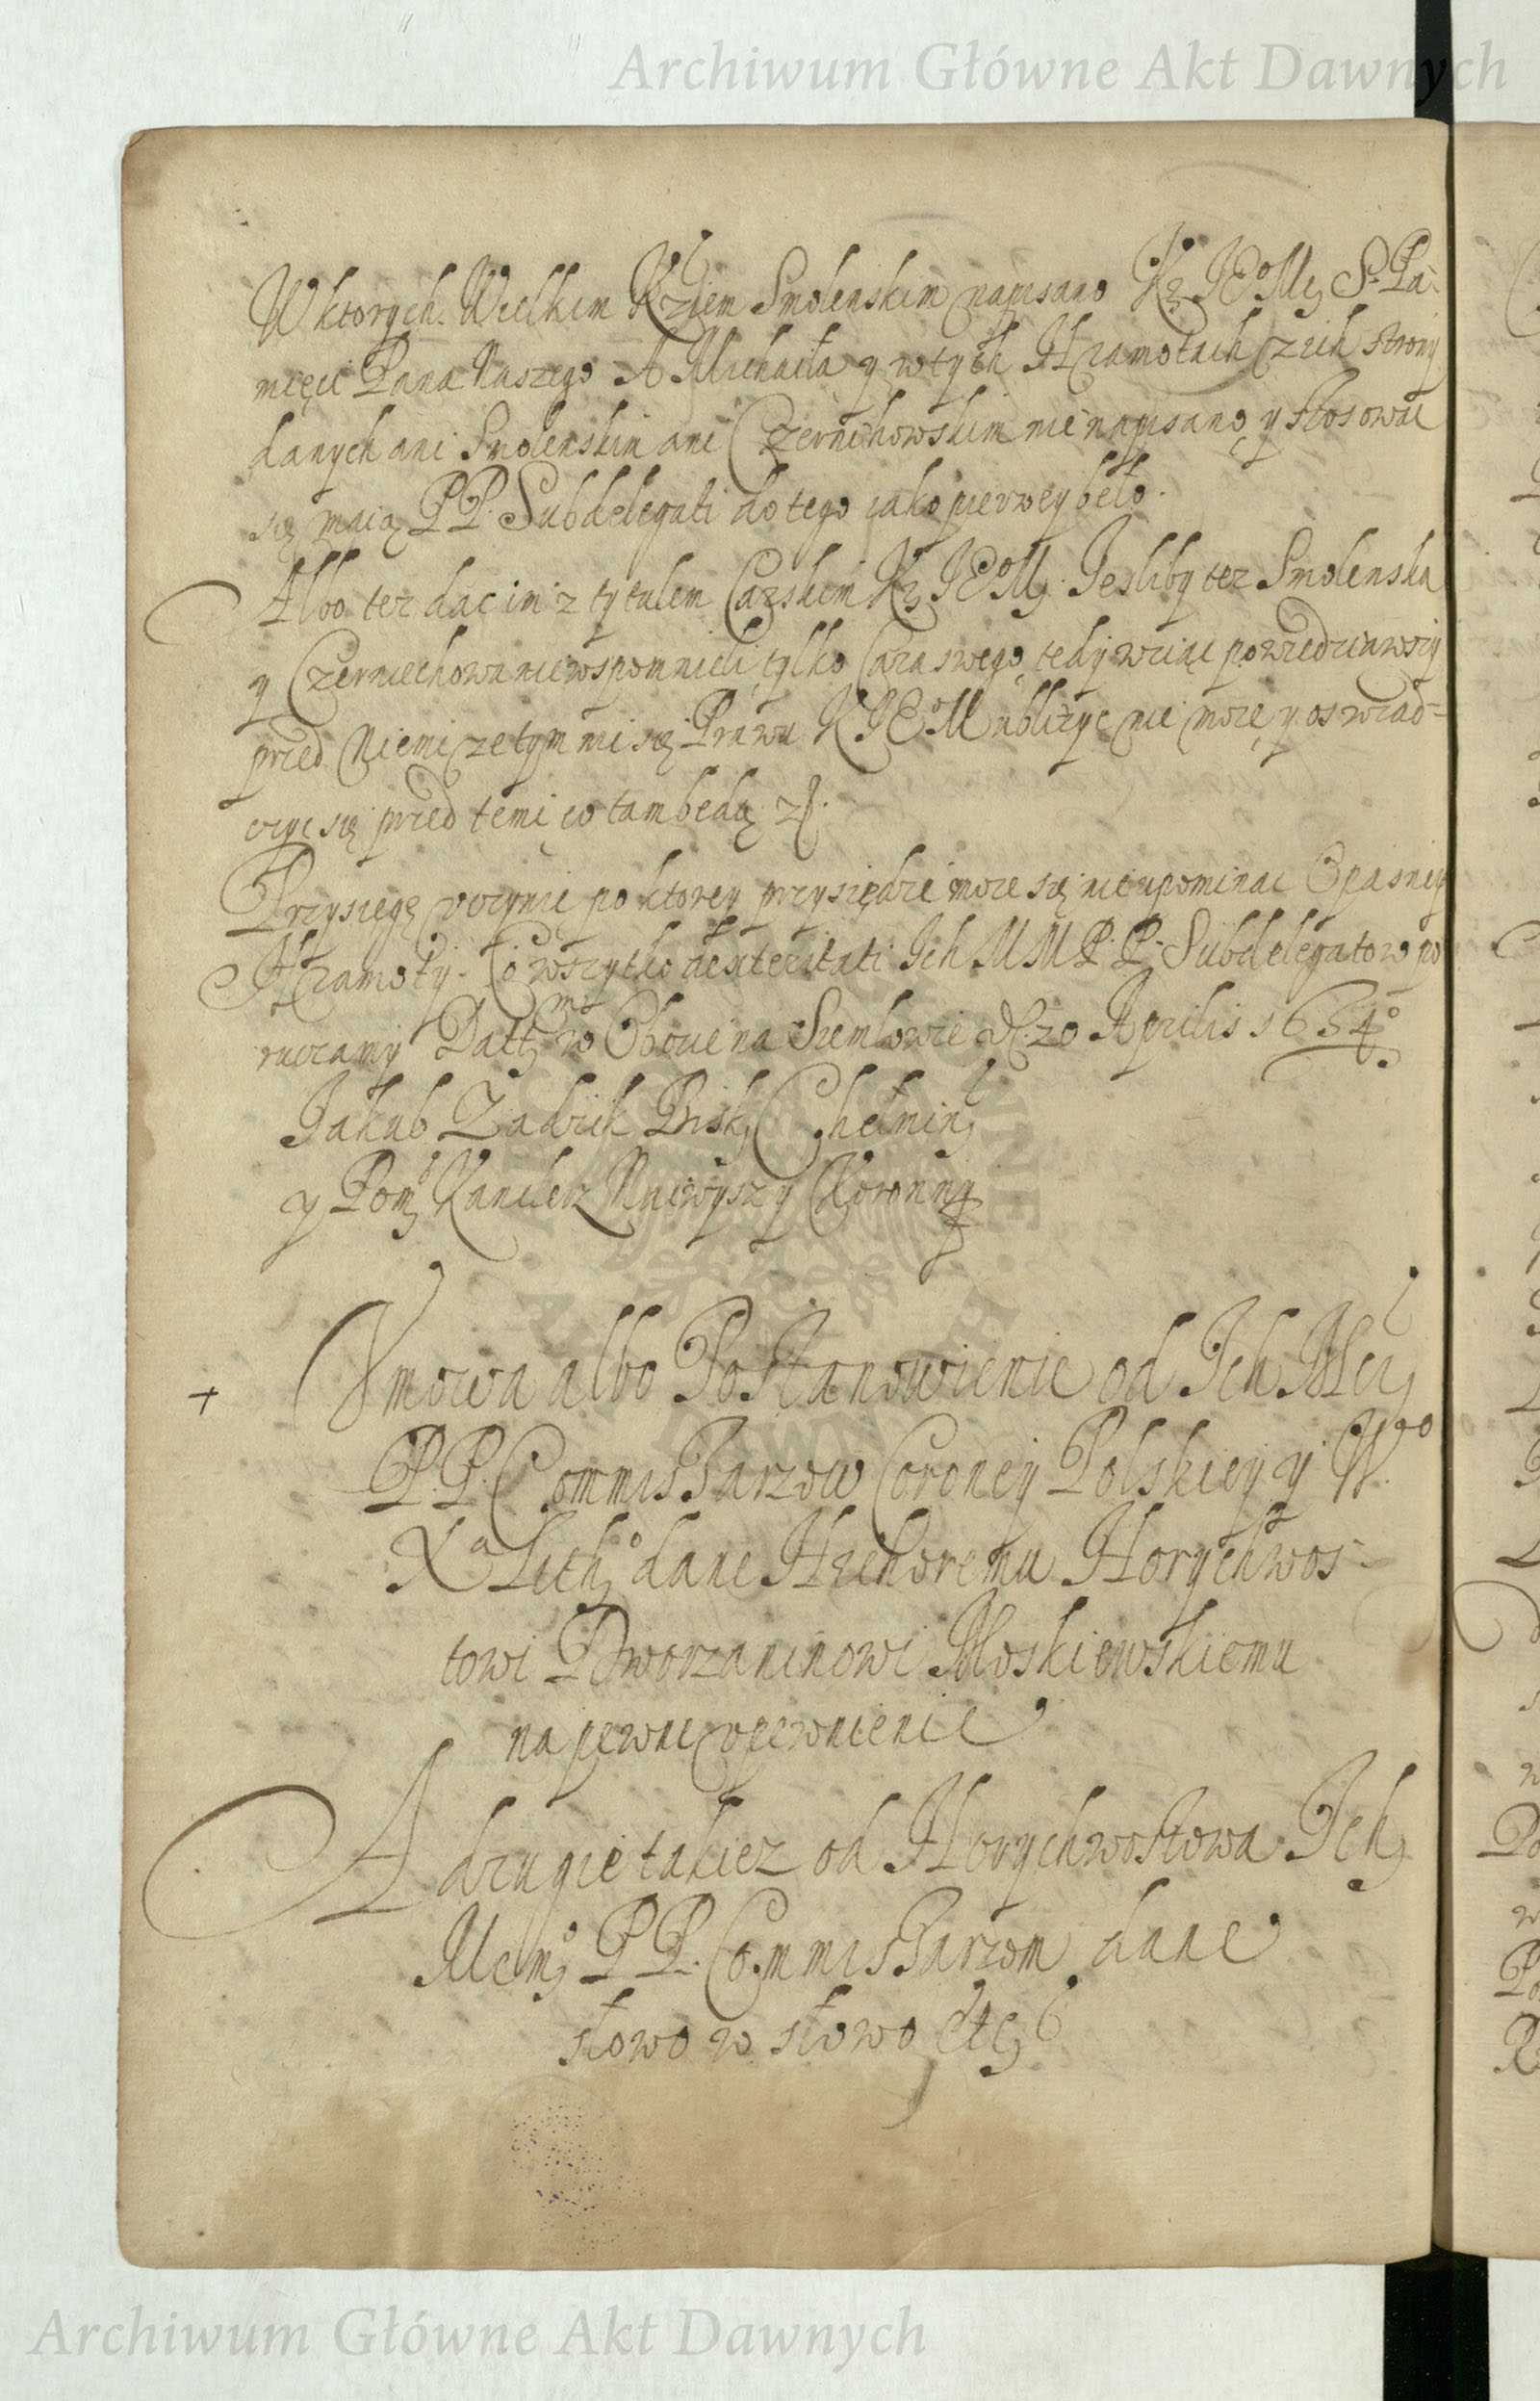 Archiwum Główne Akt Dawnych
W ktorych Wielkim Xciem Smolenskim napisano K JEoMci S. Pa-
mięci Pana Naszego A Michaiła y w tych Hramotach z ich strony
danych ani Smolenskim ani Czernihowskim nie napisano, y stosowac
się maią PP. Subdelegati do tego iako pierwey beło.
Albo tez dac im z tytulem Carskim K JEoMci. Jesliby tez Smolenska
y Czerniechowa nie wspomnieli, tylko Cara swego, tedy wziąc powiedziawszy
przed Niemi ze tym nic się Prawu K JEoM ublizyc nie moze, y oswiad-
czyc się przed temi co tam będą
Przysięgę uczynic po ktorey przysiędze moze się nie upominac Opasney
Hramoty. Co wszytko dexteritati Ich MM PP. Subdelegatow po
ruczamy Datt w Obozie na Siemlowie d 20 Aprilis 1634o
Jakub Zadzik Bisk Chełmin
y Pom Kanclerz Naiwyszy Koronny
+ Vmowa albo Postanowienie od Ich Mci
P.P. Commissarzow Coroney Polskiey y Wo
Xa Lith dane Hrehoremu Horychwos-
towi Dworzaninowi Moskiewskiemu
na pewne upewnienie
A drugie takiez od Horychwostowa Ich
Mcm PP. Commissarzom dane
słowo w słowo etc
Archiwum Główne Akt Dawnych